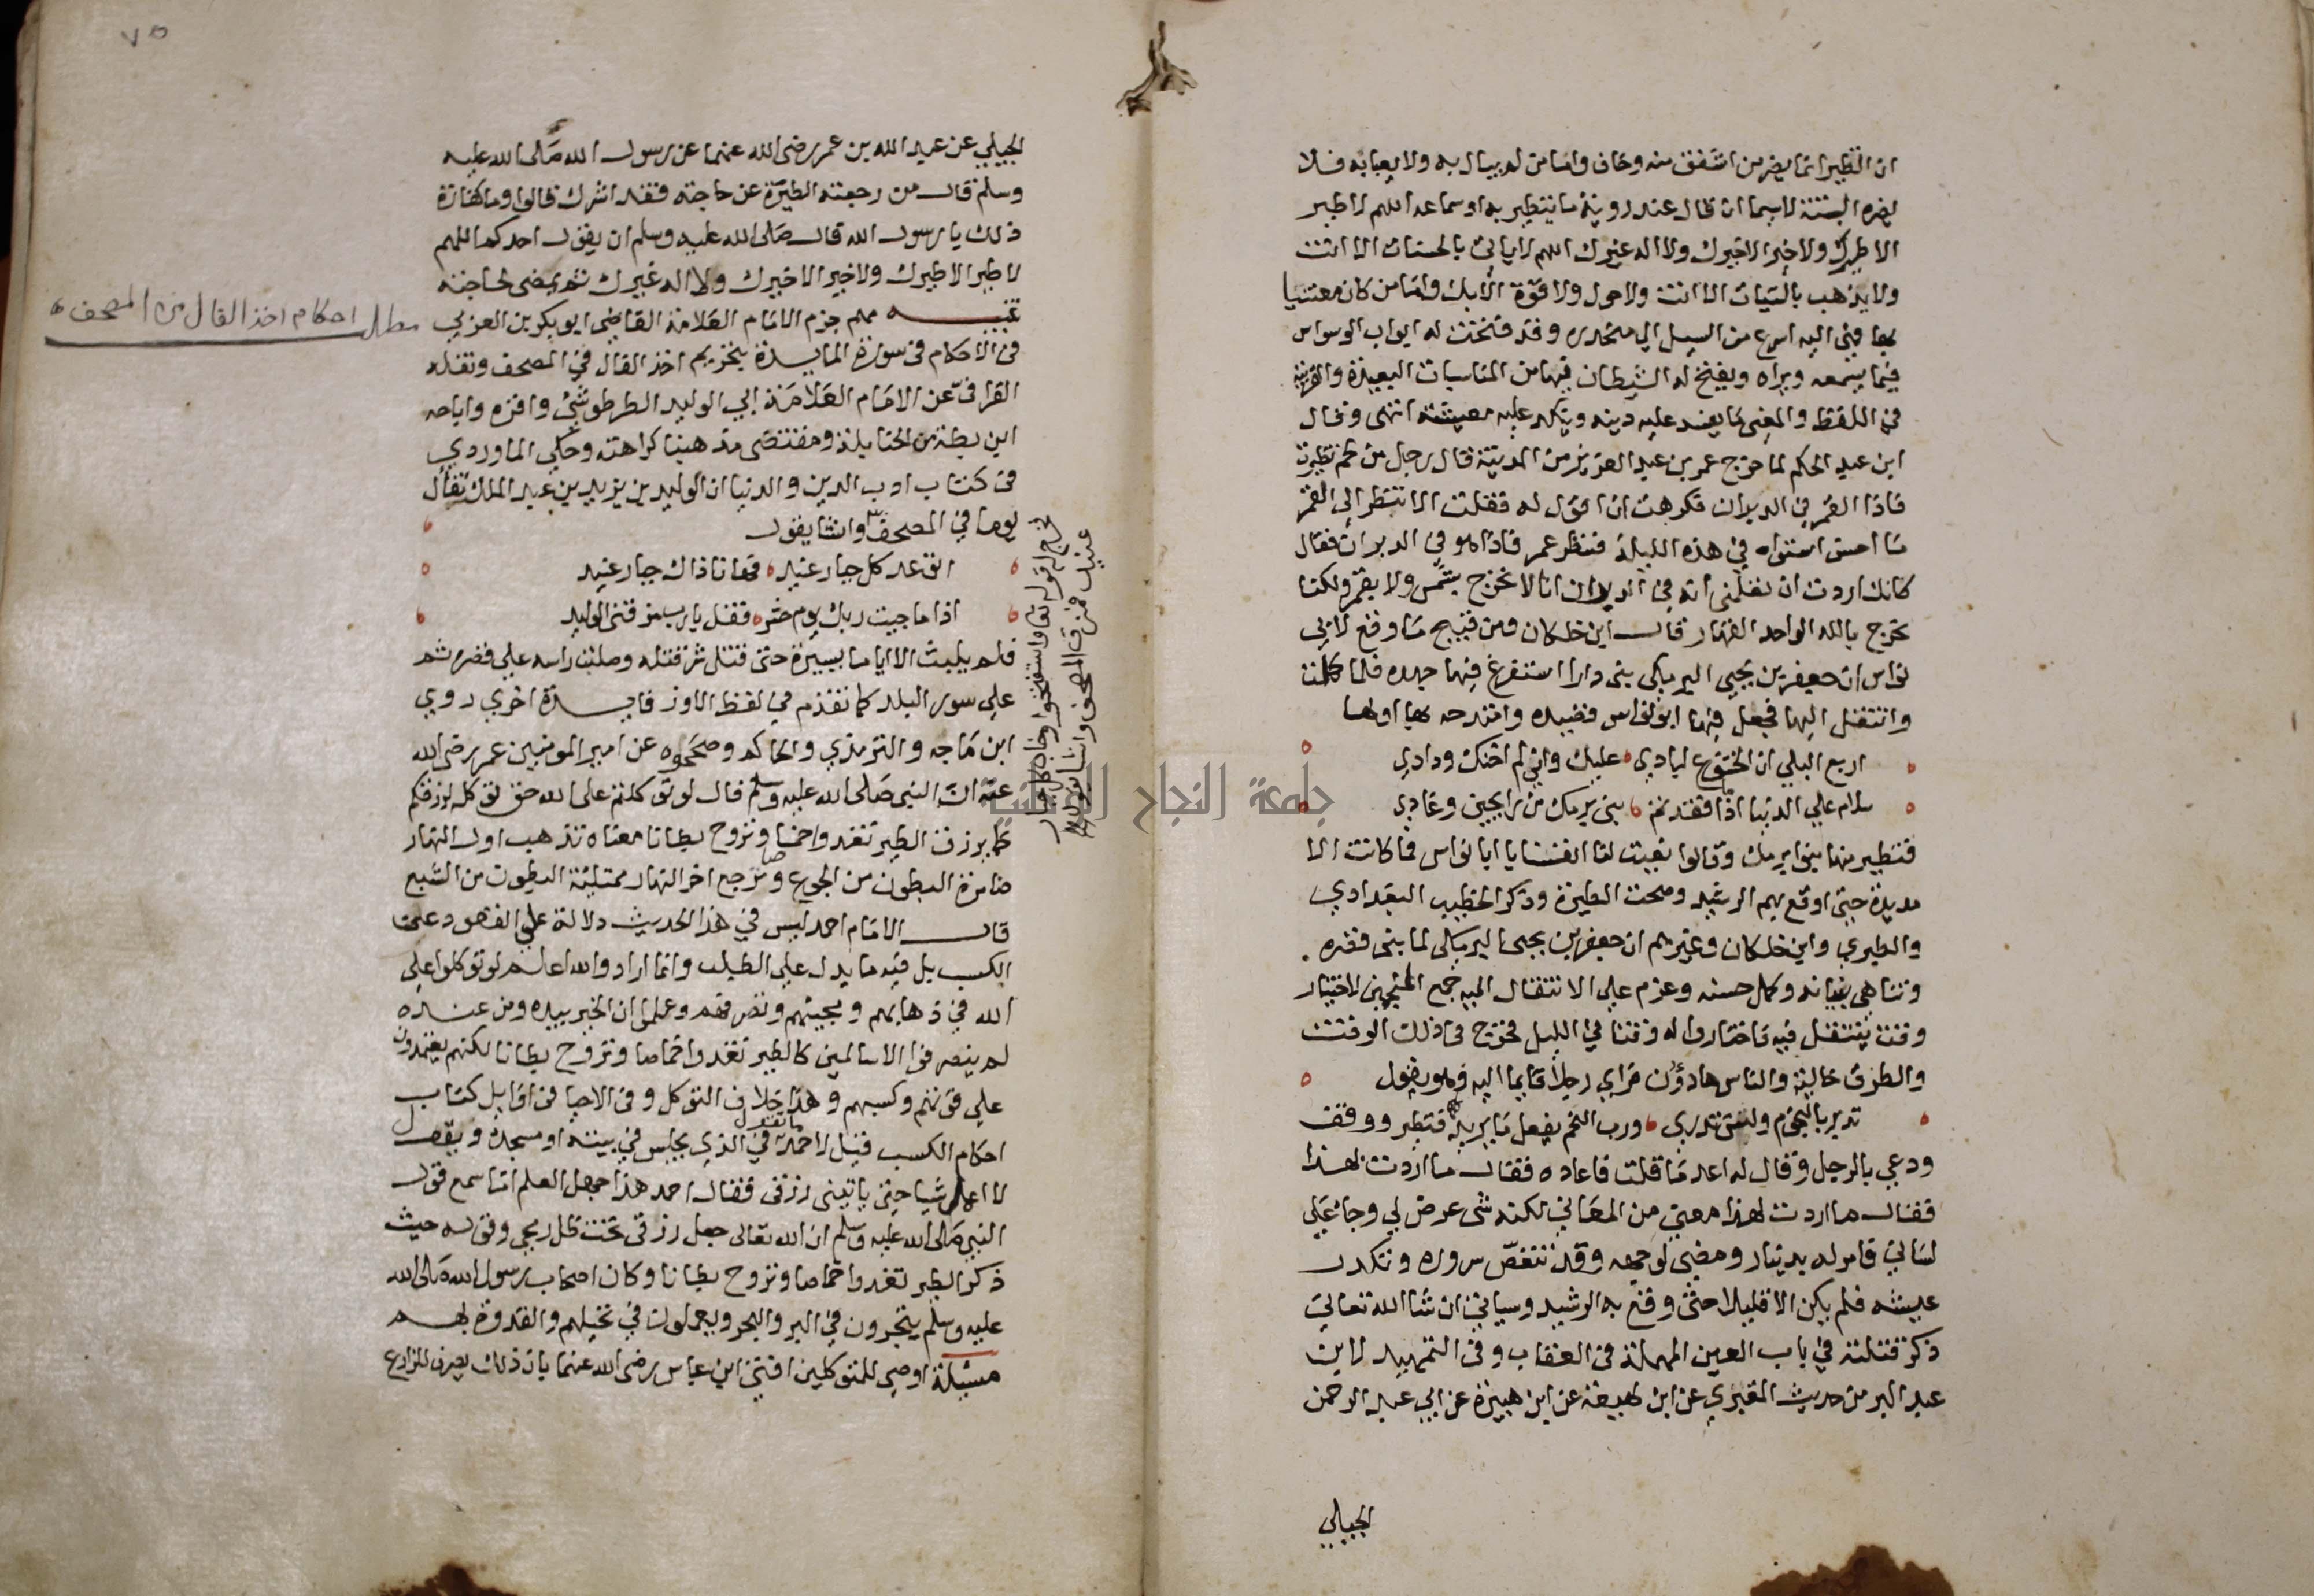 ان التطير انما يضر من اشفق منه وخاف واما من لم يبال به ولا يعبا به فلا
يضره البتة لا سيما ان قال عند روية ما يتطير به او سماعه اللهم لا طير
الا طيرك ولا خير الا خيرك ولا اله غيرك اللهم لا ياتي بالحسنات الا انت
ولا يذهب بالسيات الا انت ولا حول ولا قوة الا بك واما من كان معتنيا
بها فهي اليه اسرع من السيل الي منحدره وقد فتحت له ابواب الوسواس
فيما يسمعه ويراه ويفتح له الشيطان فيها من المناسبات البعيدة والقريبة
في اللفظ والمعنى ما يفسد عليه دينه وينكد عليه معيشته انتهى وقال
ابن عبد الحكم لما خرج عمر بن عبد العزيز من المدينة قال رجل من لخم نظرت
فاذا القمر في الدبران فكرهت ان اقول له فقلت الا تنظر الي القمر
ما احسن استواه في هذه الليلة فنظر عمر فاذا هو في الدبران فقال
كانك اردت ان تعلمني انه في الدبران انا لا نخرج بشمس ولا بقمر ولكنا
نخرج بالله الواحد القهار قال ابن خلكان ومن قبيح ما وقع لابي
نواس ان جعفر بن يحيى البرمكي بنى دارا استفرغ فيها جهده فلما كملت
وانتقل اليها فجعل فيها ابو نواس قصيده وامتدحه بها اولها
اربع البلي ان الخشوع لبادي عليك واني لم اخنك ودادي
سلام علي الدنيا اذا ما فقدتم بني برمك من رايحين وغادي
فتطير منها بنوا برمك وقالوا نعيت لنا انفسنا يا ابا نواس فما كانت الا
مديدة حتي اوقع بهم الرشيد وصحت الطيرة وذكر الخطيب البغدادي
والطبري وابن خلكان وغيرهم ان جعفر بن يحيى البرمكي لما بنى قصره
وتناهي بنيانه وكمل حسنه وعزم علي الانتقال اليه جمع المنجمين لاختيار
وقت ينتقل فيه فاختاروا له وقتا في الليل فخرج في ذلك الوقت
والطرق خالية والناس هادؤن فراي رجلا قايما اليه وهو يقول
تدبر بالنجوم ولست تدري ورب النجم يفعل ما يريد فتطير ووقف
ودعي بالرجل وقال له اعد ما قلت فاعاده فقال ما اردت بهذا
فقال ما اردت لهذا معني من المعاني لكنه شى عرض لي وجا علي
لساني فامر له بدينار ومضي لوجهه وقد تنغص سروره وتكدر
عيشه فلم يكن الا قليلا حتى وقع به الرشيد وسياتي ان شا الله تعالي
ذكر قتلته في باب العين المهملة في العقاب وفي التمهيد لابن
عبد البر من حديث المقبري عن ابن لهيعة عن ابن هبيرة عن ابي عبد الرحمن
الجيلي
٧٥
الجيلي عن عبد الله بن عمر رضى الله عنهما عن رسول الله صلى الله عليه
وسلم قال من رجعته الطيرة عن حاجته فقد اشرك قالوا وما كفارة
ذلك يا رسول الله قال صلى الله عليه وسلم ان يقول احدكم اللهم
لا طير الا طيرك ولا خير الا خيرك ولا اله غيرك ثم يمضى لحاجته
تنبيه مهم جزم الامام العلامة القاضي ابو بكر بن العربي
في الاحكام في سورة المايدة بتحريم اخذ الفال في المصحف ونقله
القرافي عن الامام العلامة ابي الوليد الطرطوشي واقره واباحه
ابن بطة من الحنابلة ومقتضى مذهبنا كراهته وحكي الماوردي
في كتاب ادب الدين والدنيا ان الوليد بن يزيد بن عبد الملك تفأل
يوما في المصحف وانشا يقول
اتوعد كل جبار عنيد فها انا ذاك جبار عنيد
اذا ما جيت ربك يوم حشر فقل يا رب مزقني الوليد
فلم يلبث الا اياما يسيرة حتى قتل شر قتله وصلب راسه علي قصره ثم
علي سور البلد كما تقدم في لفظ الاوز فايدة اخري روي
ابن ماجه والترمذي والحاكم وصححوه عن امير المومنين عمر رضى الله
عنه ان النبي صلى الله عليه وسلم قال لو توكلتم على الله حق توكله لرزقكم
كما يرزق الطير تغدوا خماصا وتروح بطانا معناه تذهب اول النهار
ضامرة البطون من الجوع وترجع اخر النهار ممتلئة البطون من الشبع
قال الامام احمد ليس في هذا الحديث دلالة علي القعود عن
الكسب بل فيه ما يدل علي الطلب وانما اراد والله اعلم لو توكلوا علي
الله في ذهابهم ومجيئهم وتصرفهم وعلموا ان الخير بيده ومن عنده
لم ينصرفوا الا سالمين كالطير تغدوا خماصا وتروح بطانا لكنهم يعتمدون
علي قوتهم وكسبهم وهذا خلاف التوكل وفي الاحيا في اوايل كتاب
احكام الكسب قيل لاحمد ما تقول في الذي يجلس في بيته او مسجده ويقول
لا اعمل شيا حتي ياتيني رزقى فقال احمد هذا جهل العلم اما سمع قول
النبي صلى الله عليه وسلم ان الله تعالى جعل رزقي تحت ظل رمحي وقوله حيث
ذكر الطير تغدوا خماصا وتروح بطانا وكان اصحاب رسول الله صلى الله
عليه وسلم يتجرون في البر والبحر ويعملون في نخيلهم والقدوة بهم
مسئلة اوصي للمتوكلين افتى ابن عباس رضى الله عنهما بان ذلك يصرف للزارع
مطلب احكام اخذ الفال من المصحف
فخرج له قوله تعا واستفتحوا وخاب كل جبار
عنيد فمزق المصحف وانشا يقول
جامعة النجاح الوطنية